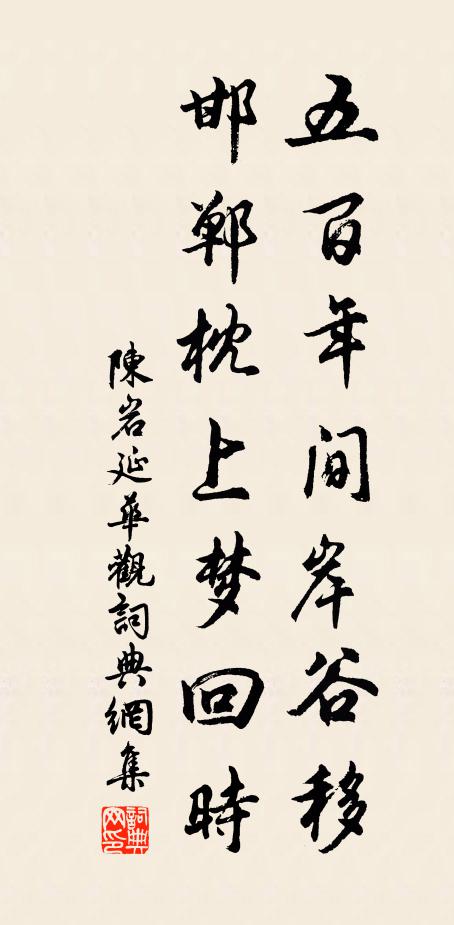 五百年间岸谷移
邯郸枕上梦回時
陳岩延華觀詞典網集
詞典
网印